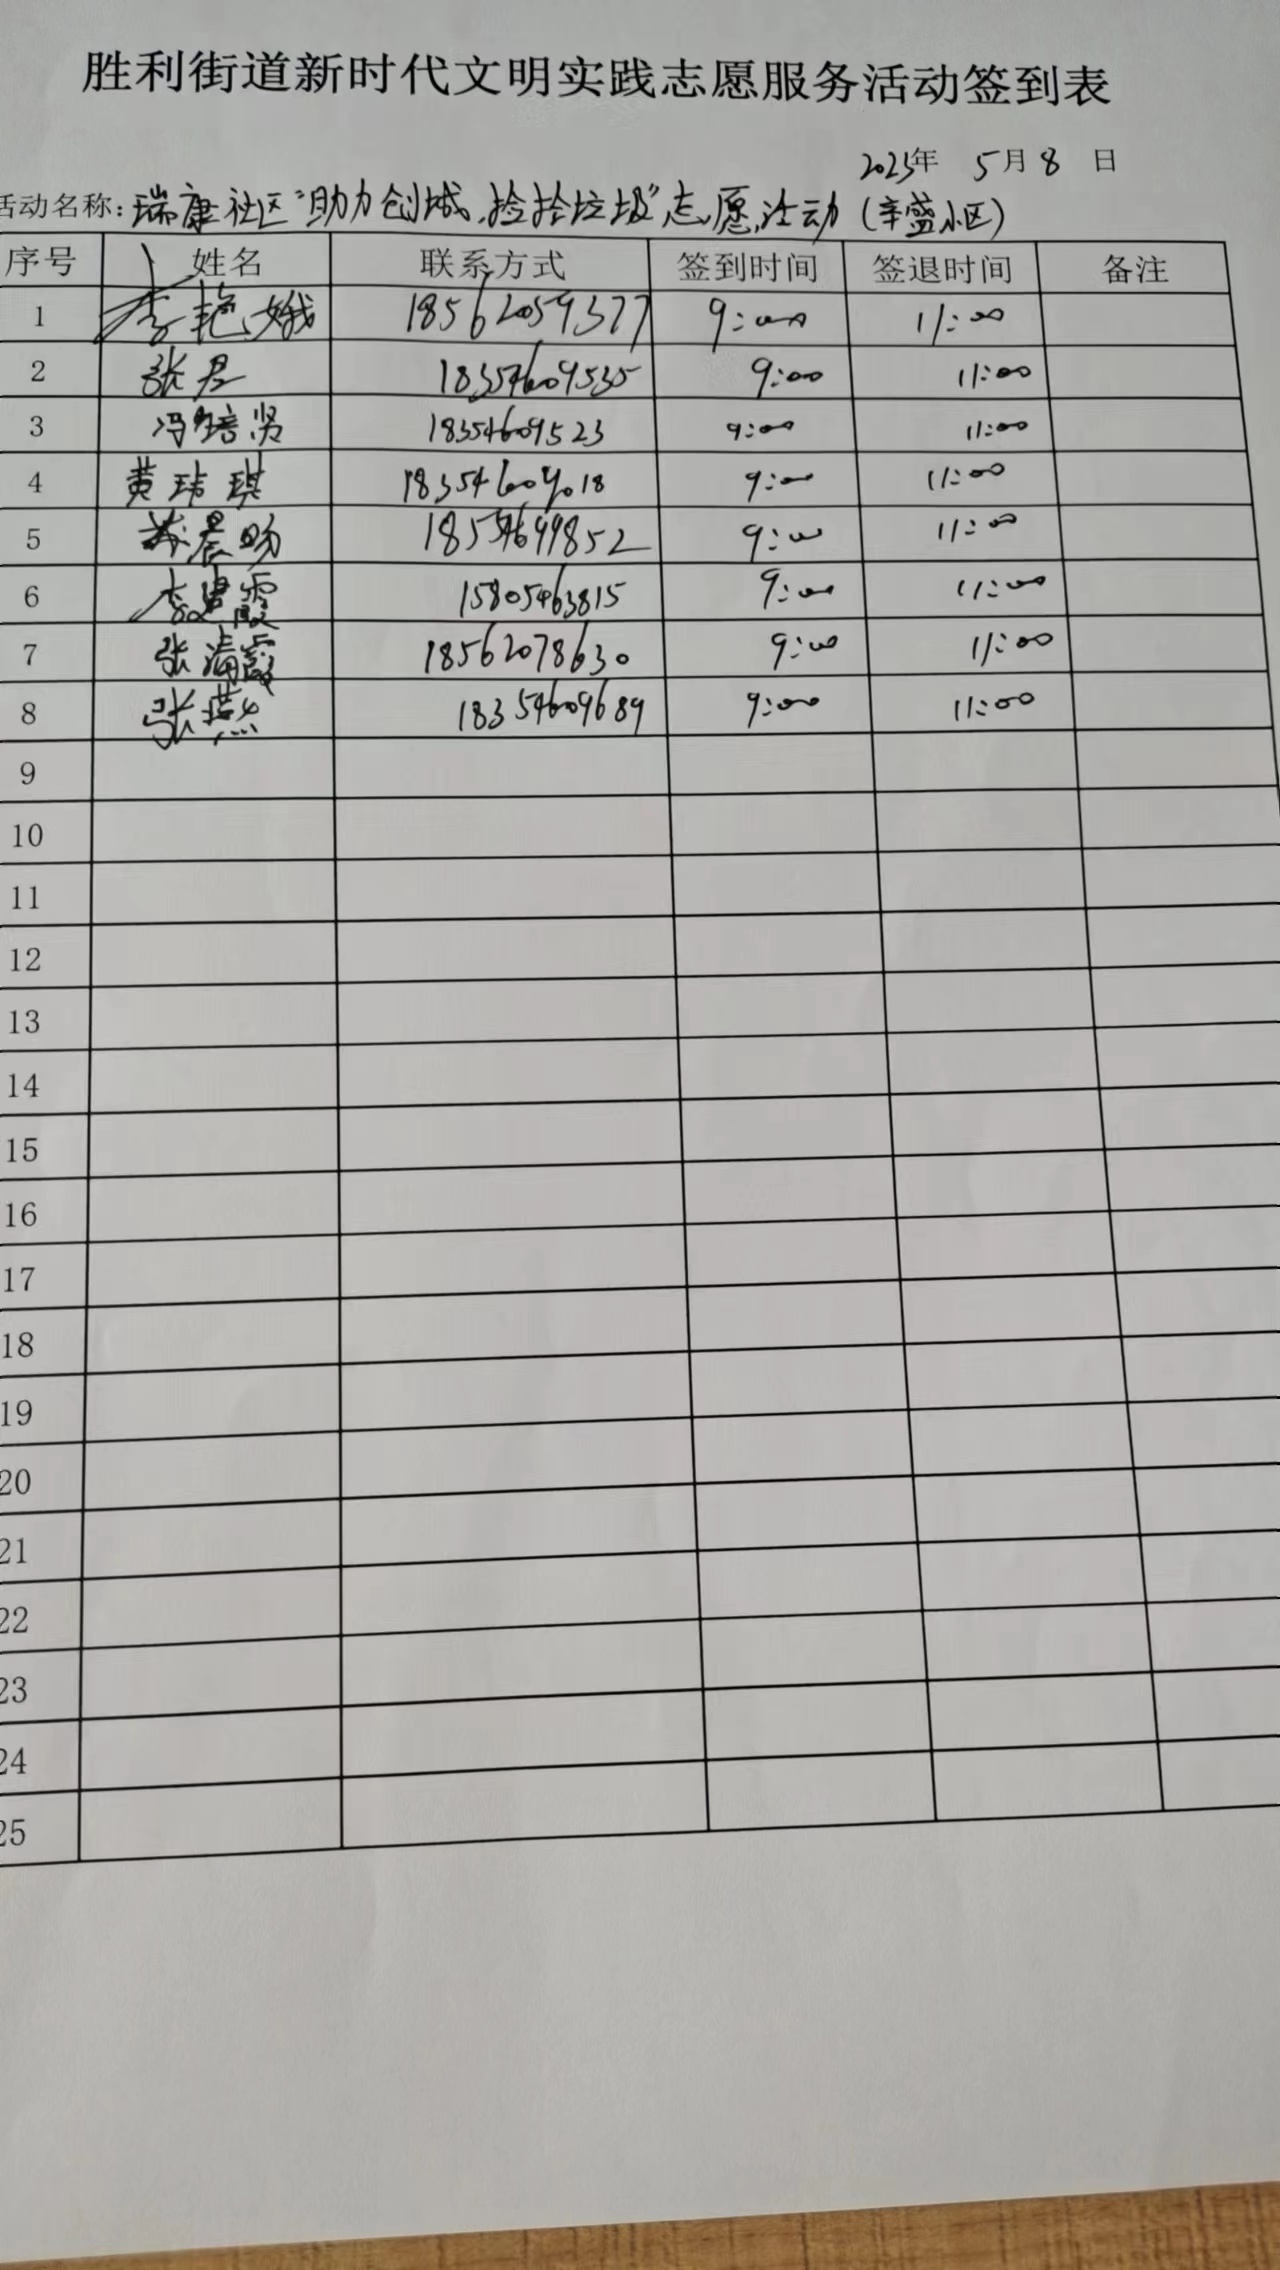 胜利街道新时代文明实践志愿服务活动签到表
2023年 5月8日
活动名称：瑞康社区“助力创城、捡拾垃圾”志愿活动（辛盛小区）
序号 姓名 联系方式 签到时间 签退时间 备注
1 李艳娥 18562059377 9:00 11:00
2 张君 18354609535 9:00 11:00
3 冯培贤 18354609523 9:00 11:00
4 黄玮琪 18354609018 9:00 11:00
5 晨 18554699852 9:00 11:00
6 霞 15805463815 9:00 11:00
7 张清霞 18562078630 9:00 11:00
8 张燕 18354609689 9:00 11:00
9
10
11
12
13
14
15
16
17
18
19
20
21
22
23
24
25